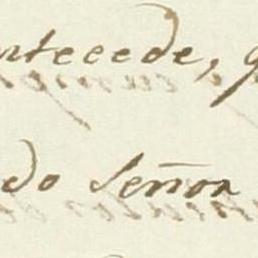 ntecede, q
do Señor